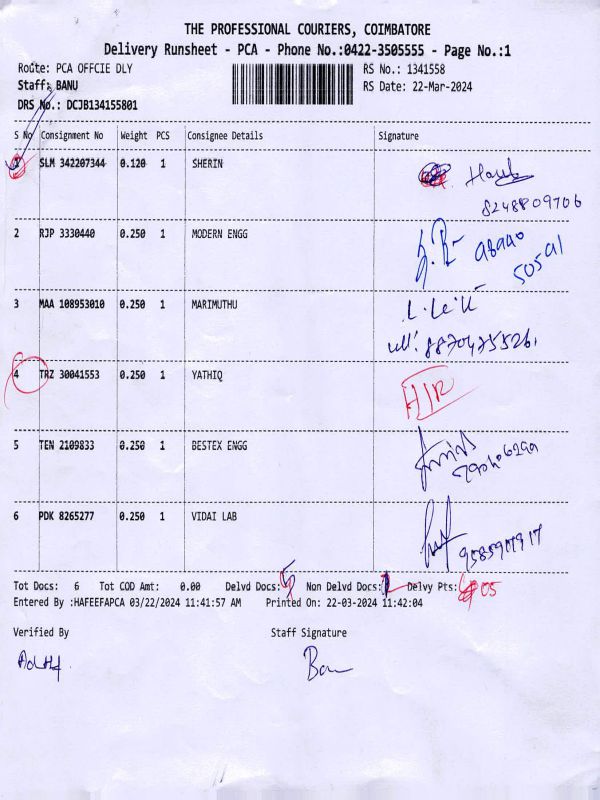 THE PROFESSIONAL COURIERS, COIMBATORE
Delivery Runsheet - PCA - Phone No.:0422-3505555 - Page No.:1
Route: PCA OFFCIE DLY RS No.: 1341558
Staff: BANU RS Date: 22-Mar-2024
DRS No.: DCJB134155801
S No Consignment No Weight PCS Consignee Details Signature
1 SLM 342207344 0.120 1 SHERIN
8248809706
2 RJP 3330440 0.250 1 MODERN ENGG
3 MAA 108953010 0.250 1 MARIMUTHU
8870475526
4 TRZ 30041553 0.250 1 YATHIQ
5 TEN 2109833 0.250 1 BESTEX ENGG
6 PDK 8265277 0.250 1 VIDAI LAB
Tot Docs: 6 Tot COD Amt: 0.00 Delvd Docs: 5 Non Delvd Docs: 1 Delvy Pts: 05
Entered By :HAFEEFAPCA 03/22/2024 11:41:57 AM Printed On: 22-03-2024 11:42:04
Verified By Staff Signature